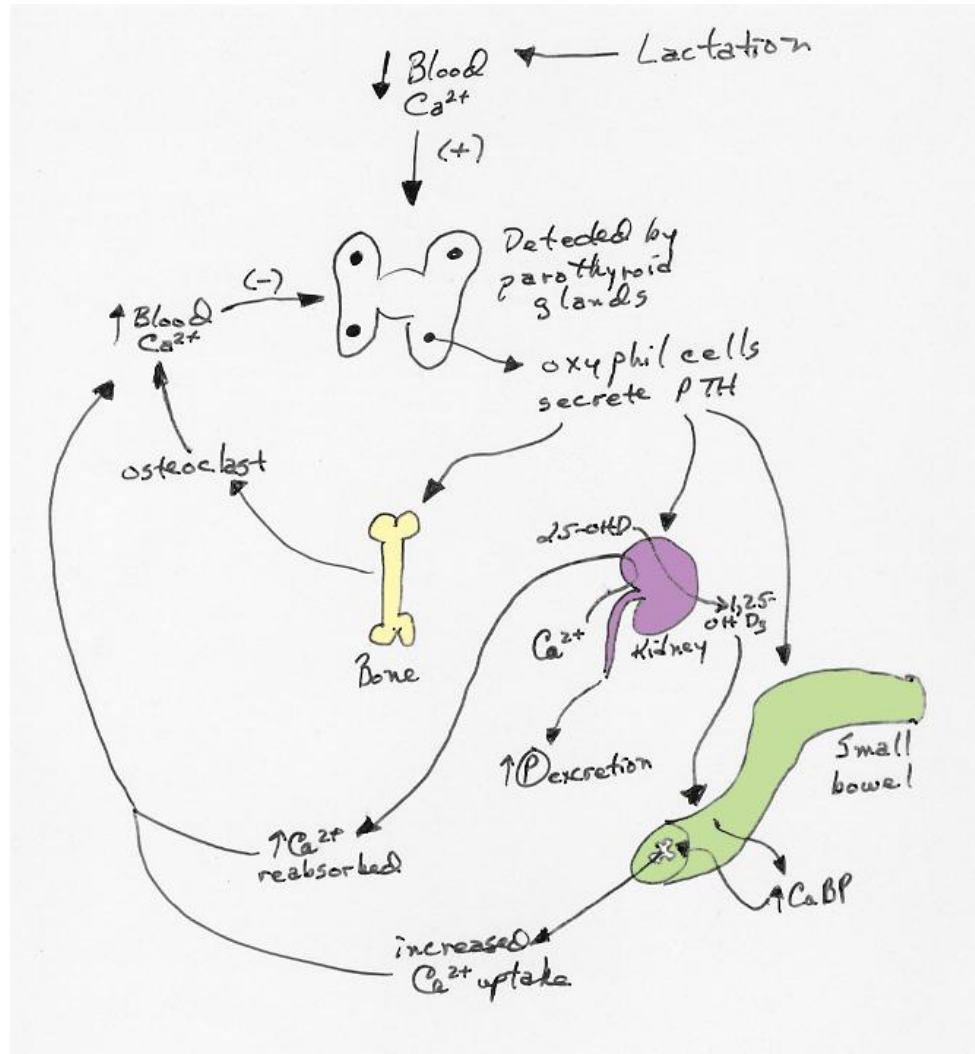 Lactation
↓ Blood
Ca²⁺
(+)
Detected by
parathyroid
glands
(-)
↑ Blood
Ca²⁺
oxyphil cells
secrete PTH
osteoclast
25-OHD
1,25-
OHD₃
Ca²⁺
Kidney
Bone
↑ P excretion
Small
bowel
↑ Ca²⁺
reabsorbed
↑ CaBP
increased
Ca²⁺ uptake